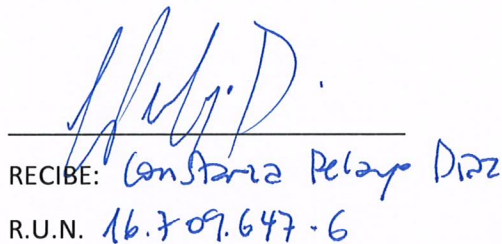 RECIBE: Constanza Pelayo Diaz
R.U.N. 16.709.647-6